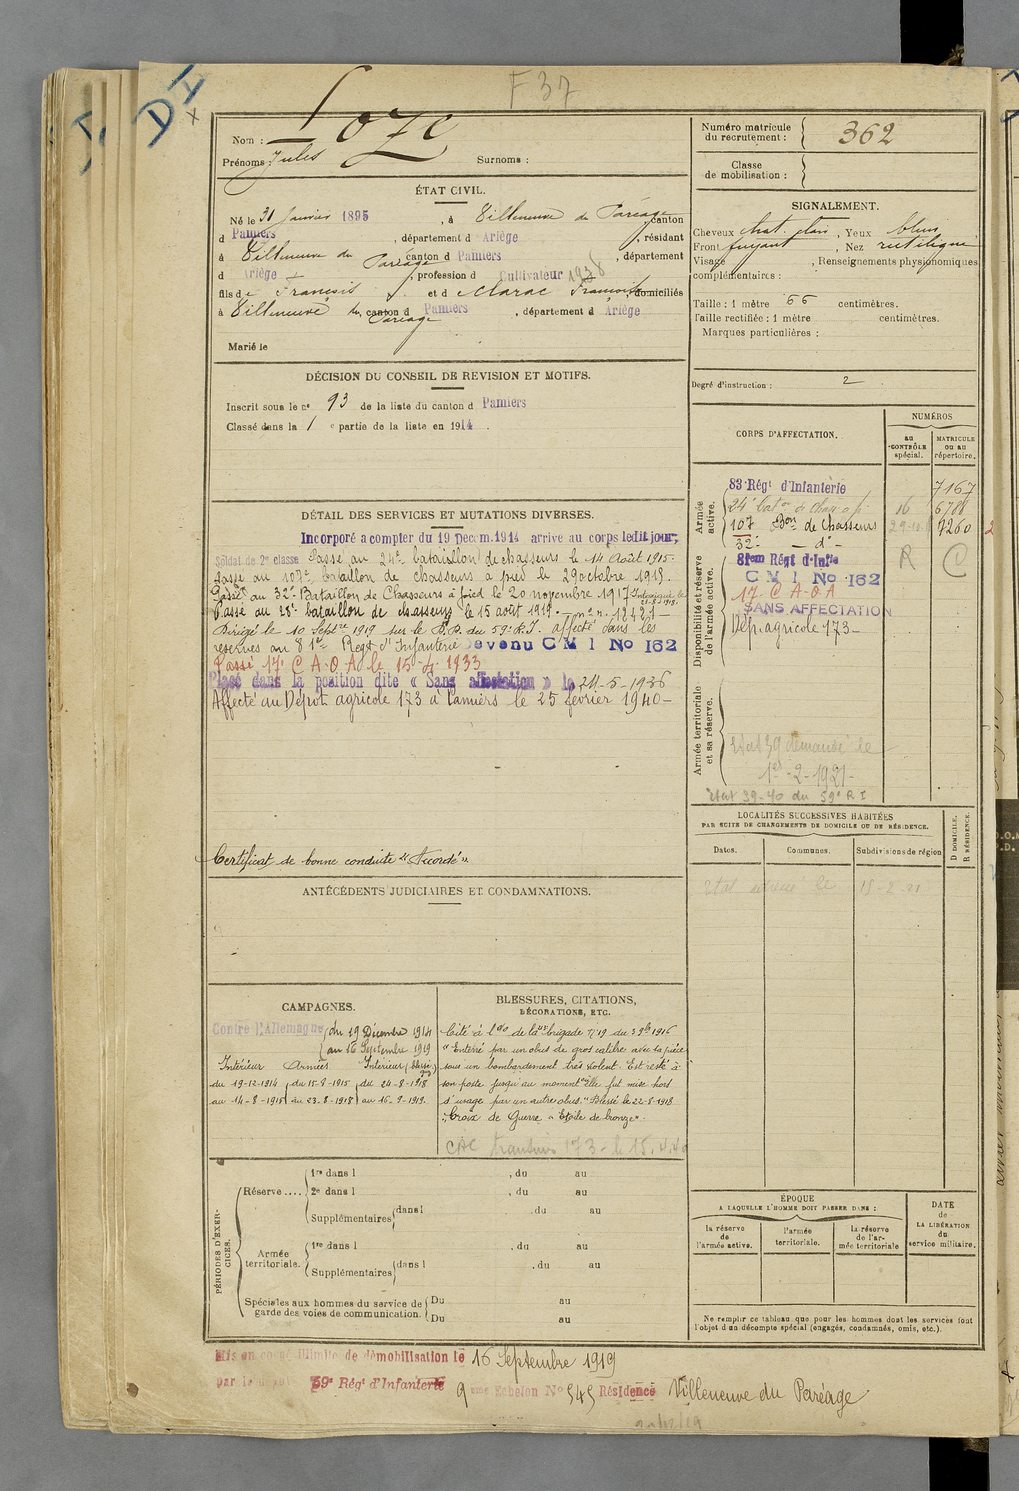 F 37
DI
Nom : Loze
Prénoms : Jules Surnoms :
Numéro matricule du recrutement : 362
Classe de mobilisation :
ÉTAT CIVIL.
Né le 31 Janvier 1895, à Villeneuve du Paréage, canton
d Pamiers, département d Ariège, résidant
à Villeneuve du Paréage canton d Pamiers, département
d Ariège, profession d Cultivateur
fils de François et d Marac Françoise, domiciliés
à Villeneuve du Paréage, canton d Pamiers, département d Ariège
Marié le
SIGNALEMENT.
Cheveux chat. clair, Yeux bleus
Front fuyant, Nez rectiligne
Visage , Renseignements physionomiques
complémentaires :
Taille : 1 mètre 66 centimètres.
Taille rectifiée : 1 mètre centimètres.
Marques particulières :
Degré d'instruction : 2
DÉCISION DU CONSEIL DE REVISION ET MOTIFS.
Inscrit sous le n° 93 de la liste du canton d Pamiers
Classé dans la 1e partie de la liste en 1914.
CORPS D'AFFECTATION.
NUMÉROS
au CONTRÔLE spécial.
MATRICULE ou au répertoire.
Armée active.
83 Régt d'Infanterie 7167
24e Baton de Chass à p. 16 6788
107 Bon de Chasseurs 7260 2
32e — d° —
Disponibilité et réserve de l'armée active.
81em Régt d'Infie R C
C M I No 162
17 C A-O A
SANS AFFECTATION
Dép. agricole 173 —
Armée territoriale et sa réserve.
Etat 39 demandé le
1er-2-1921-
Etat 39-40 du 59e R I
DÉTAIL DES SERVICES ET MUTATIONS DIVERSES.
Incorporé a compter du 19 Décem. 1914 arrive au corps ledit jour,
Soldat de 2e classe Passé au 24e bataillon de chasseurs le 14 Août 1915.
Passé au 107e bataillon de chasseurs à pied le 29 octobre 1918.
Passé au 32e Bataillon de Chasseurs à pied le 20 novembre 1917
Passé au 28e bataillon de chasseurs le 15 août 1919. — m. r. 12421 —
Dirigé le 10 Septre 1919 sur le D.D. du 59e R.I. affecté dans les
réserves au 81me Regt d'Infanterie Devenu C M I No 162
Passé 17e C A-O A le 15-4-1933
Placé dans la position dite « Sans affectation » le 24-5-1936
Affecté au Dépot agricole 173 à Pamiers le 25 février 1940 —
Certificat de bonne conduite "Accordé"
LOCALITÉS SUCCESSIVES HABITÉES
PAR SUITE DE CHANGEMENTS DE DOMICILE OU DE RÉSIDENCE.
Dates. Communes. Subdivisions de région
D DOMICILE. R RÉSIDENCE.
ANTÉCÉDENTS JUDICIAIRES ET CONDAMNATIONS.
CAMPAGNES.
Contre l'Allemagne du 19 Décembre 1914
au 16 Septembre 1919
Intérieur Armées Intérieur (blessé)
du 19-12-1914 du 15-8-1915 du 24-8-1918
au 14-8-1915 au 23-8-1918 au 16-9-1919.
BLESSURES, CITATIONS,
DÉCORATIONS, ETC.
Cité à l'Oo de la brigade n° 19 du 3 9bre 1916
"Enterré par un obus de gros calibre avec sa pièce
sous un bombardement très violent. Est resté à
son poste jusqu'au moment où elle fut mise hors
d'usage par un autre obus." Blessé le 22-8-1918
Croix de Guerre "Etoile de bronze".
PÉRIODES D'EXERCICES.
Réserve....
1re dans l , du au
2e dans l , du au
Supplémentaires dans l , du au
Armée territoriale.
1re dans l , du au
Supplémentaires dans l , du au
Spéciales aux hommes du service de garde des voies de communication.
Du au
Du au
ÉPOQUE
A LAQUELLE L'HOMME DOIT PASSER DANS :
la réserve de l'armée active.
l'armée territoriale.
la réserve de l'armée territoriale
DATE de LA LIBÉRATION du service militaire.
Ne remplir ce tableau que pour les hommes dont les services font
l'objet d'un décompte spécial (engagés, condamnés, omis, etc.).
Mis en congé illimité de démobilisation le 16 Septembre 1919
par le dépôt 59e Régt d'Infanterie 9eme Echelon No 545 Résidence Villeneuve du Paréage